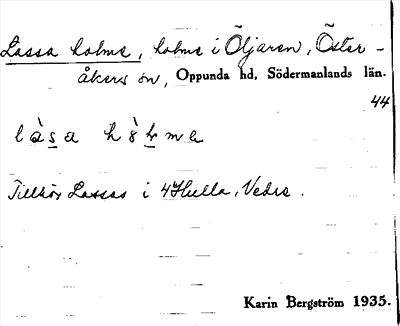 Lassa holme, holme i Öljaren, Öster-
åkers sn, Oppunda hd, Södermanlands län.
44
Tillhör Lassas i Hulla, Vedra.
Karin Bergström 1935.